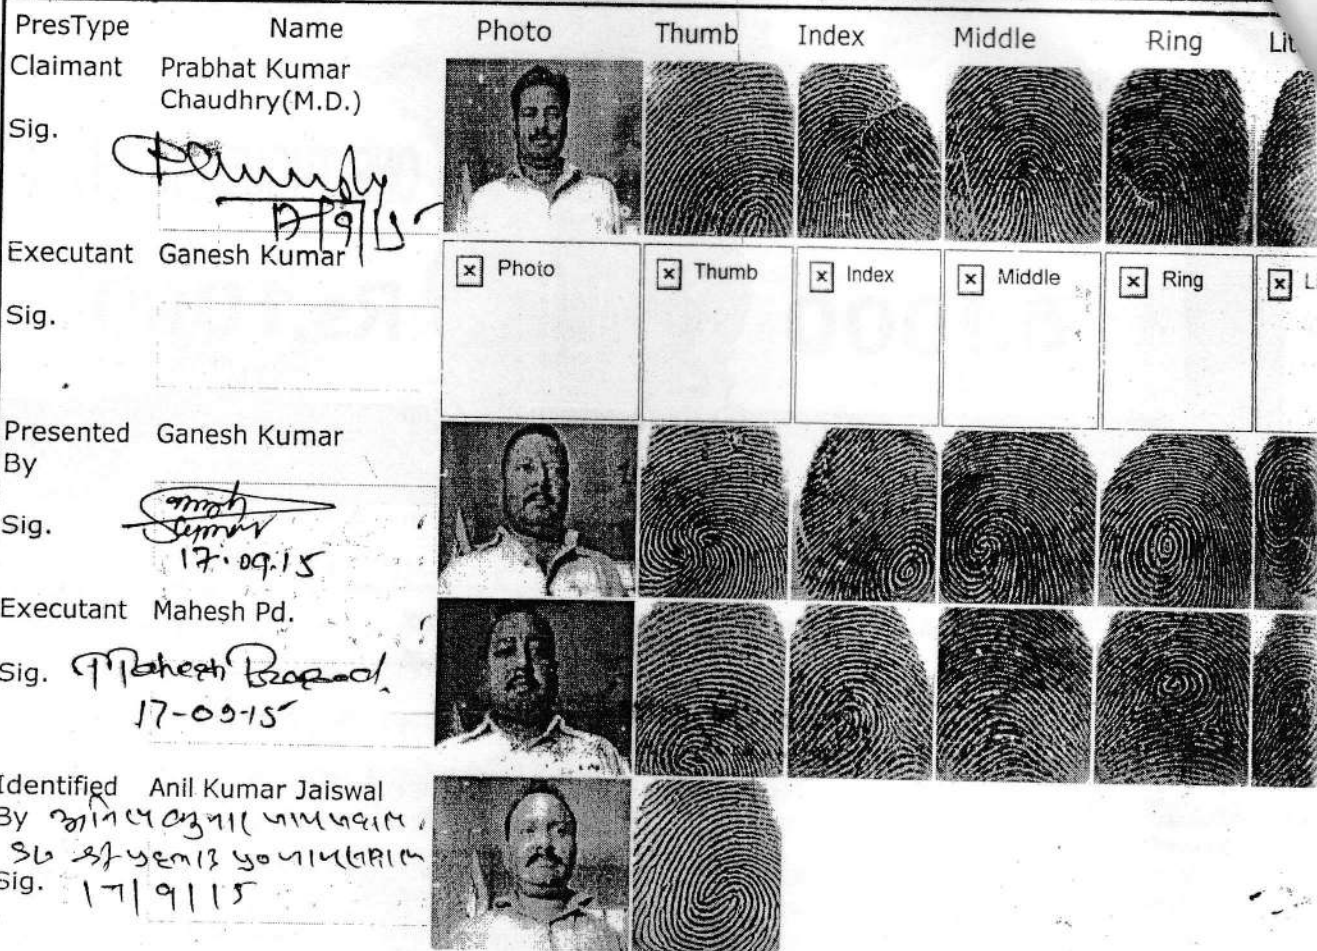 PresType Name Photo Thumb Index Middle Ring Lit
Claimant Prabhat Kumar
Chaudhry(M.D.)
Sig.
17/9/15
Executant Ganesh Kumar Photo Thumb Index Middle Ring Li
Sig.
Presented Ganesh Kumar
By
Sig.
17.09.15
Executant Mahesh Pd.
Sig. Mahesh Prasad
17-09-15
Identified Anil Kumar Jaiswal
By अनिल कुमार जायसवाल
Sig. 17/9/15